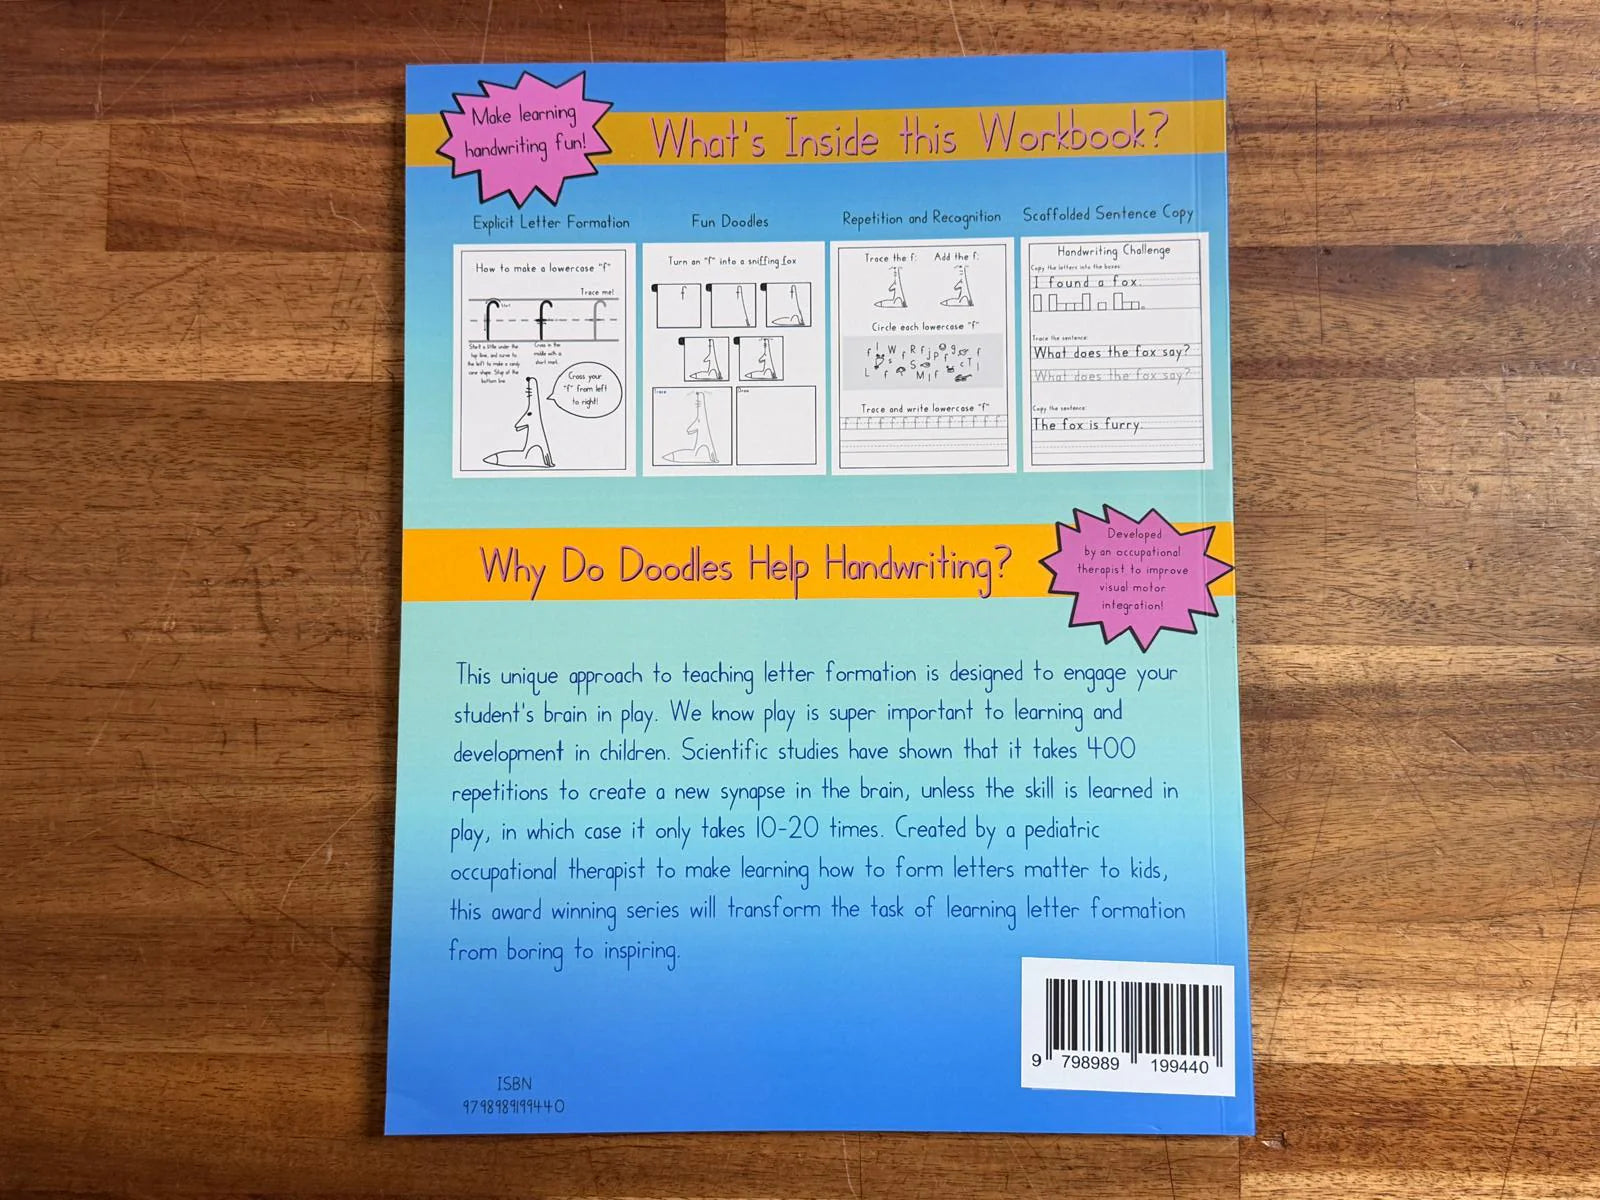 Make learning
handwriting fun!
What's Inside this Workbook?
Explicit Letter Formation
Fun Doodles
Repetition and Recognition
Scaffolded Sentence Copy
How to make a lowercase "f"
Trace me!
Start
f f f
Start a little under the
top line, and curve to
the left to make a candy
cane shape. Stop at the
bottom line.
Cross in the
middle with a
short line.
Cross your
"f" from left
to right!
Turn an "f" into a sniffing fox
f
Trace
Draw
Trace the f:
Add the f:
Circle each lowercase "f"
Trace and write lowercase "f"
f f f f f f f f f f f f f f
Handwriting Challenge
Copy the letters into the boxes:
I found a fox.
Trace the sentence:
What does the fox say?
What does the fox say?
Copy the sentence:
The fox is furry.
Why Do Doodles Help Handwriting?
Developed
by an occupational
therapist to improve
visual motor
integration!
This unique approach to teaching letter formation is designed to engage your
student's brain in play. We know play is super important to learning and
development in children. Scientific studies have shown that it takes 400
repetitions to create a new synapse in the brain, unless the skill is learned in
play, in which case it only takes 10-20 times. Created by a pediatric
occupational therapist to make learning how to form letters matter to kids,
this award winning series will transform the task of learning letter formation
from boring to inspiring.
9 798989 199440
ISBN
9798989199440